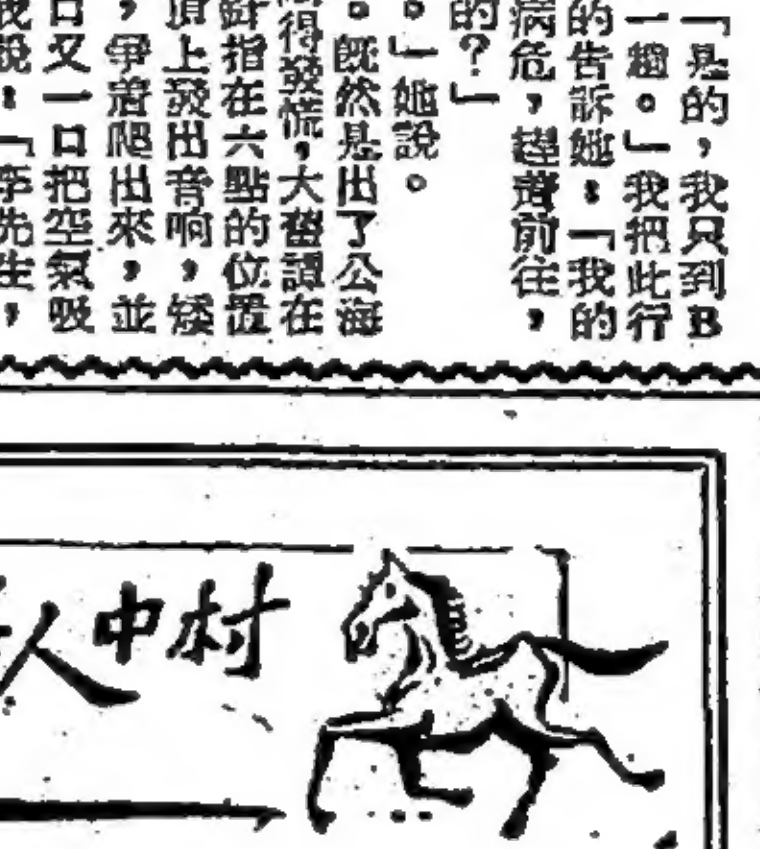 「是的，我只到B
一趟。」我把此行
的告訴她：「我的
病危，趕着前往，
的？」
。」她說。
。既然是出了公海
得發慌，大舊譚在
針指在六點的位置
頂上發出音响，矮
，爭着爬出來，並
口又一口把空氣吸
我說：「李先生，
村中人